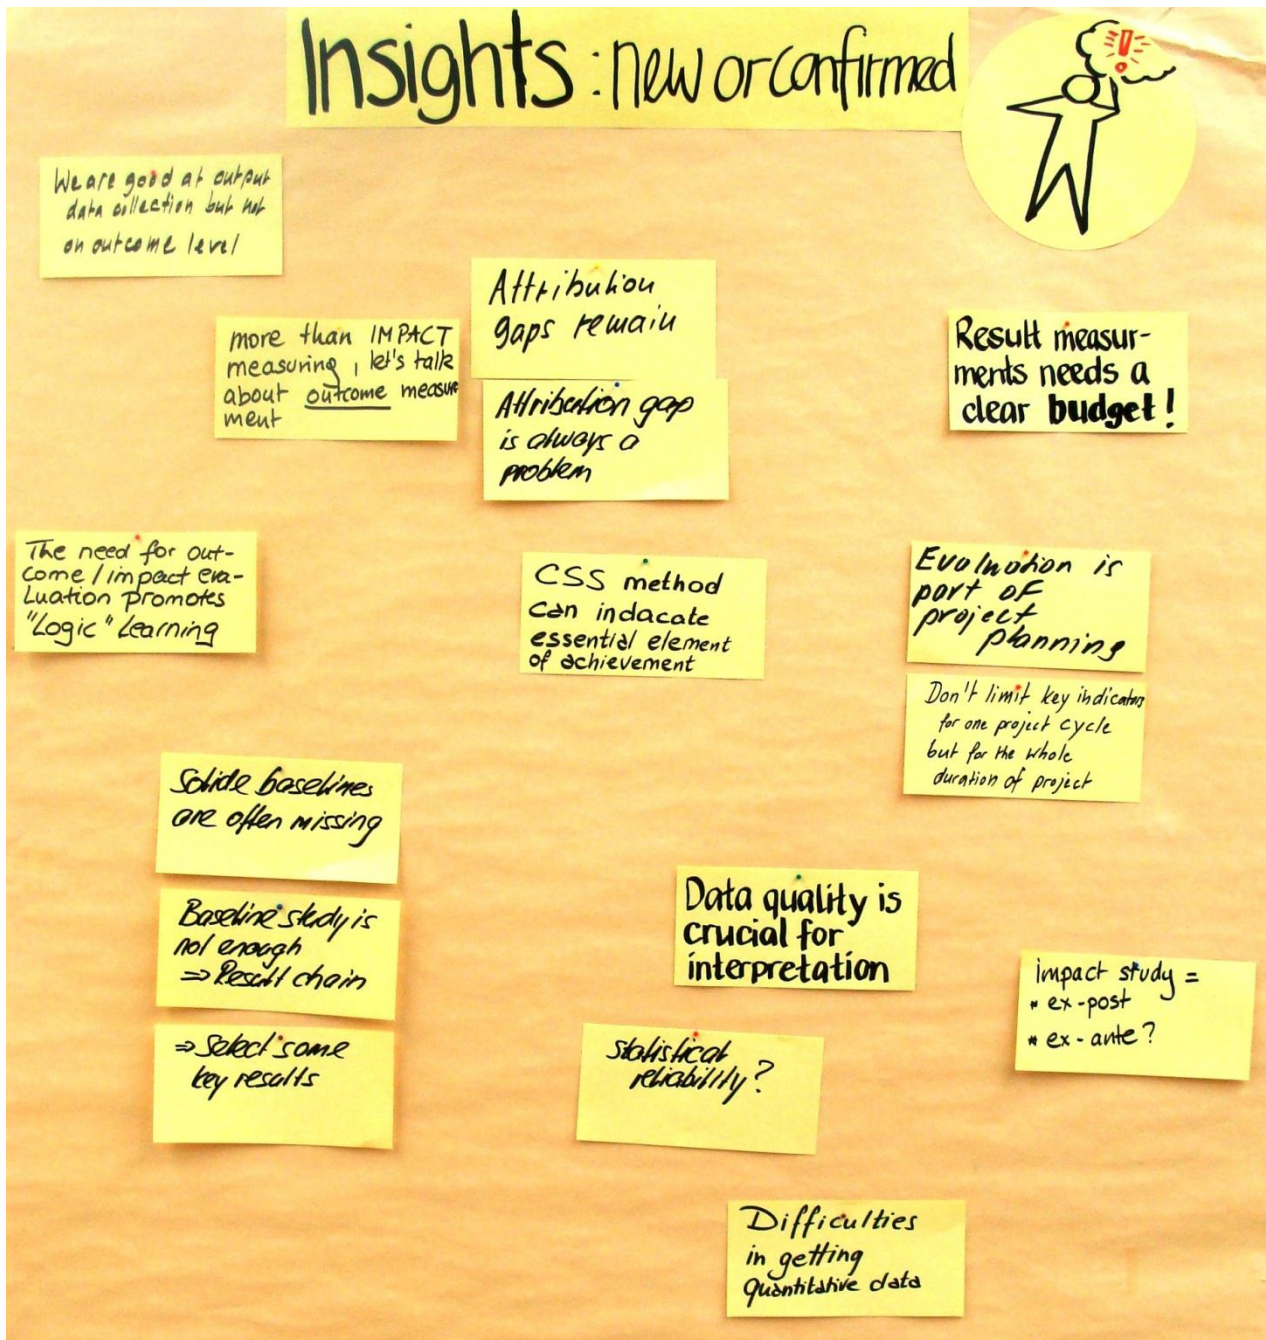 Insights: new or confirmed
!
We are good at output
data collection but not
on outcome level
more than IMPACT
measuring, let's talk
about outcome measure
ment
Attribution
gaps remain
Attribution gap
is always a
problem
Result measur-
ments needs a
clear budget!
The need for out-
come/impact eva-
luation promotes
"Logic" Learning
CSS method
can indacate
essential element
of achievement
Evaluation is
part of
project
planning
Don't limit key indicators
for one project cycle
but for the whole
duration of project
Solide baselines
are often missing
Baseline study is
not enough
⇒ Result chain
⇒ Select some
key results
Data quality is
crucial for
interpretation
statistical
reliability?
impact study =
* ex-post
* ex-ante?
Difficulties
in getting
quantitative data